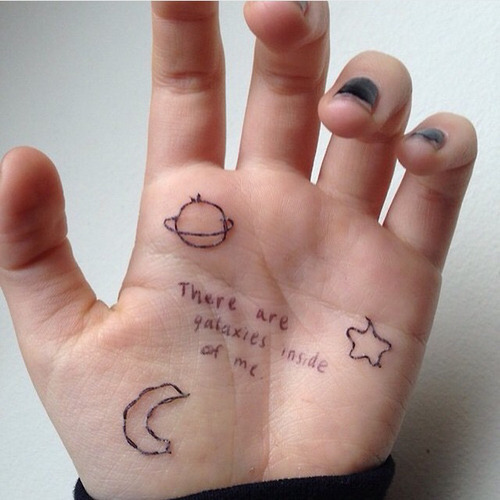 There are
galaxies inside
of me.